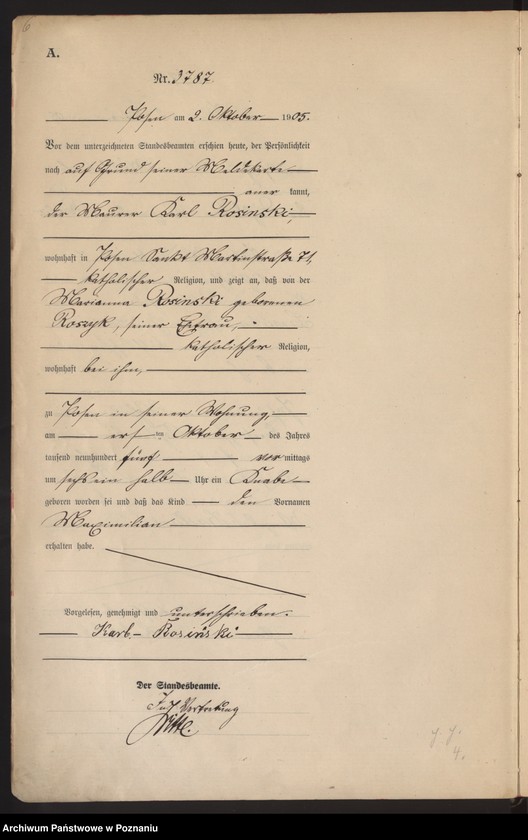 6
A.
Nr. 3787.
Posen am 2. Oktober 1905.
Vor dem unterzeichneten Standesbeamten erschien heute, der Persönlichkeit
nach auf Grund seiner Meldekarte
aner kannt,
der Maurer Karl Rosinski,
wohnhaft in Posen Sankt Martinstraße 71,
katholischer Religion, und zeigt an, daß von der
Marianna Rosinski geborenen
Roszyk, seiner Ehefrau,
katholischer Religion,
wohnhaft bei ihm,
zu Posen in seiner Wohnung,
am ersten Oktober des Jahres
tausend neunhundert fünf vormittags
um sechs ein halb Uhr ein Knabe
geboren worden sei und daß das Kind den Vornamen
Maximilian
erhalten habe.
Vorgelesen, genehmigt und unterschrieben.
Karl Rosinski
Der Standesbeamte.
In Vertretung
Archiwum Państwowe w Poznaniu